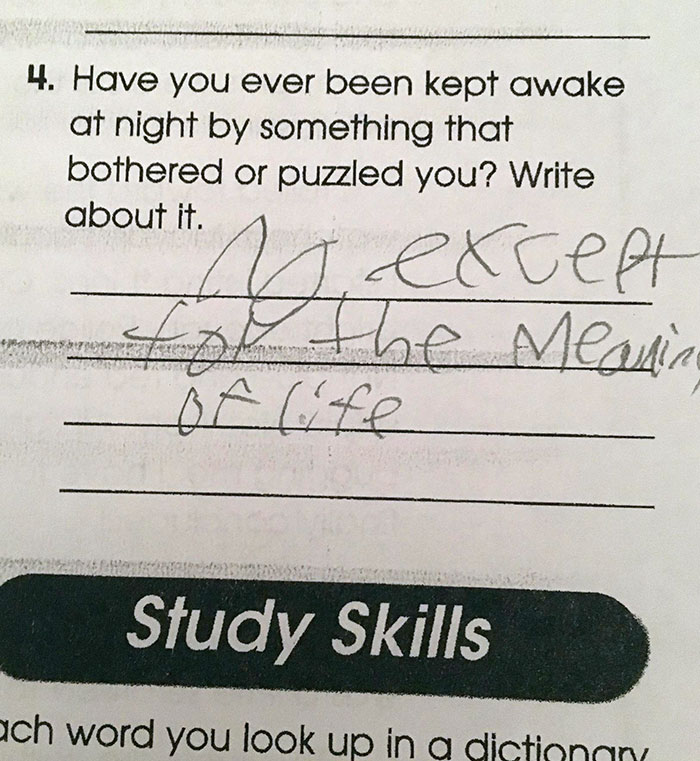 4. Have you ever been kept awake
at night by something that
bothered or puzzled you? Write
about it.
No except
for the Meaning
of life
Study Skills
ach word you look up in a dictionary